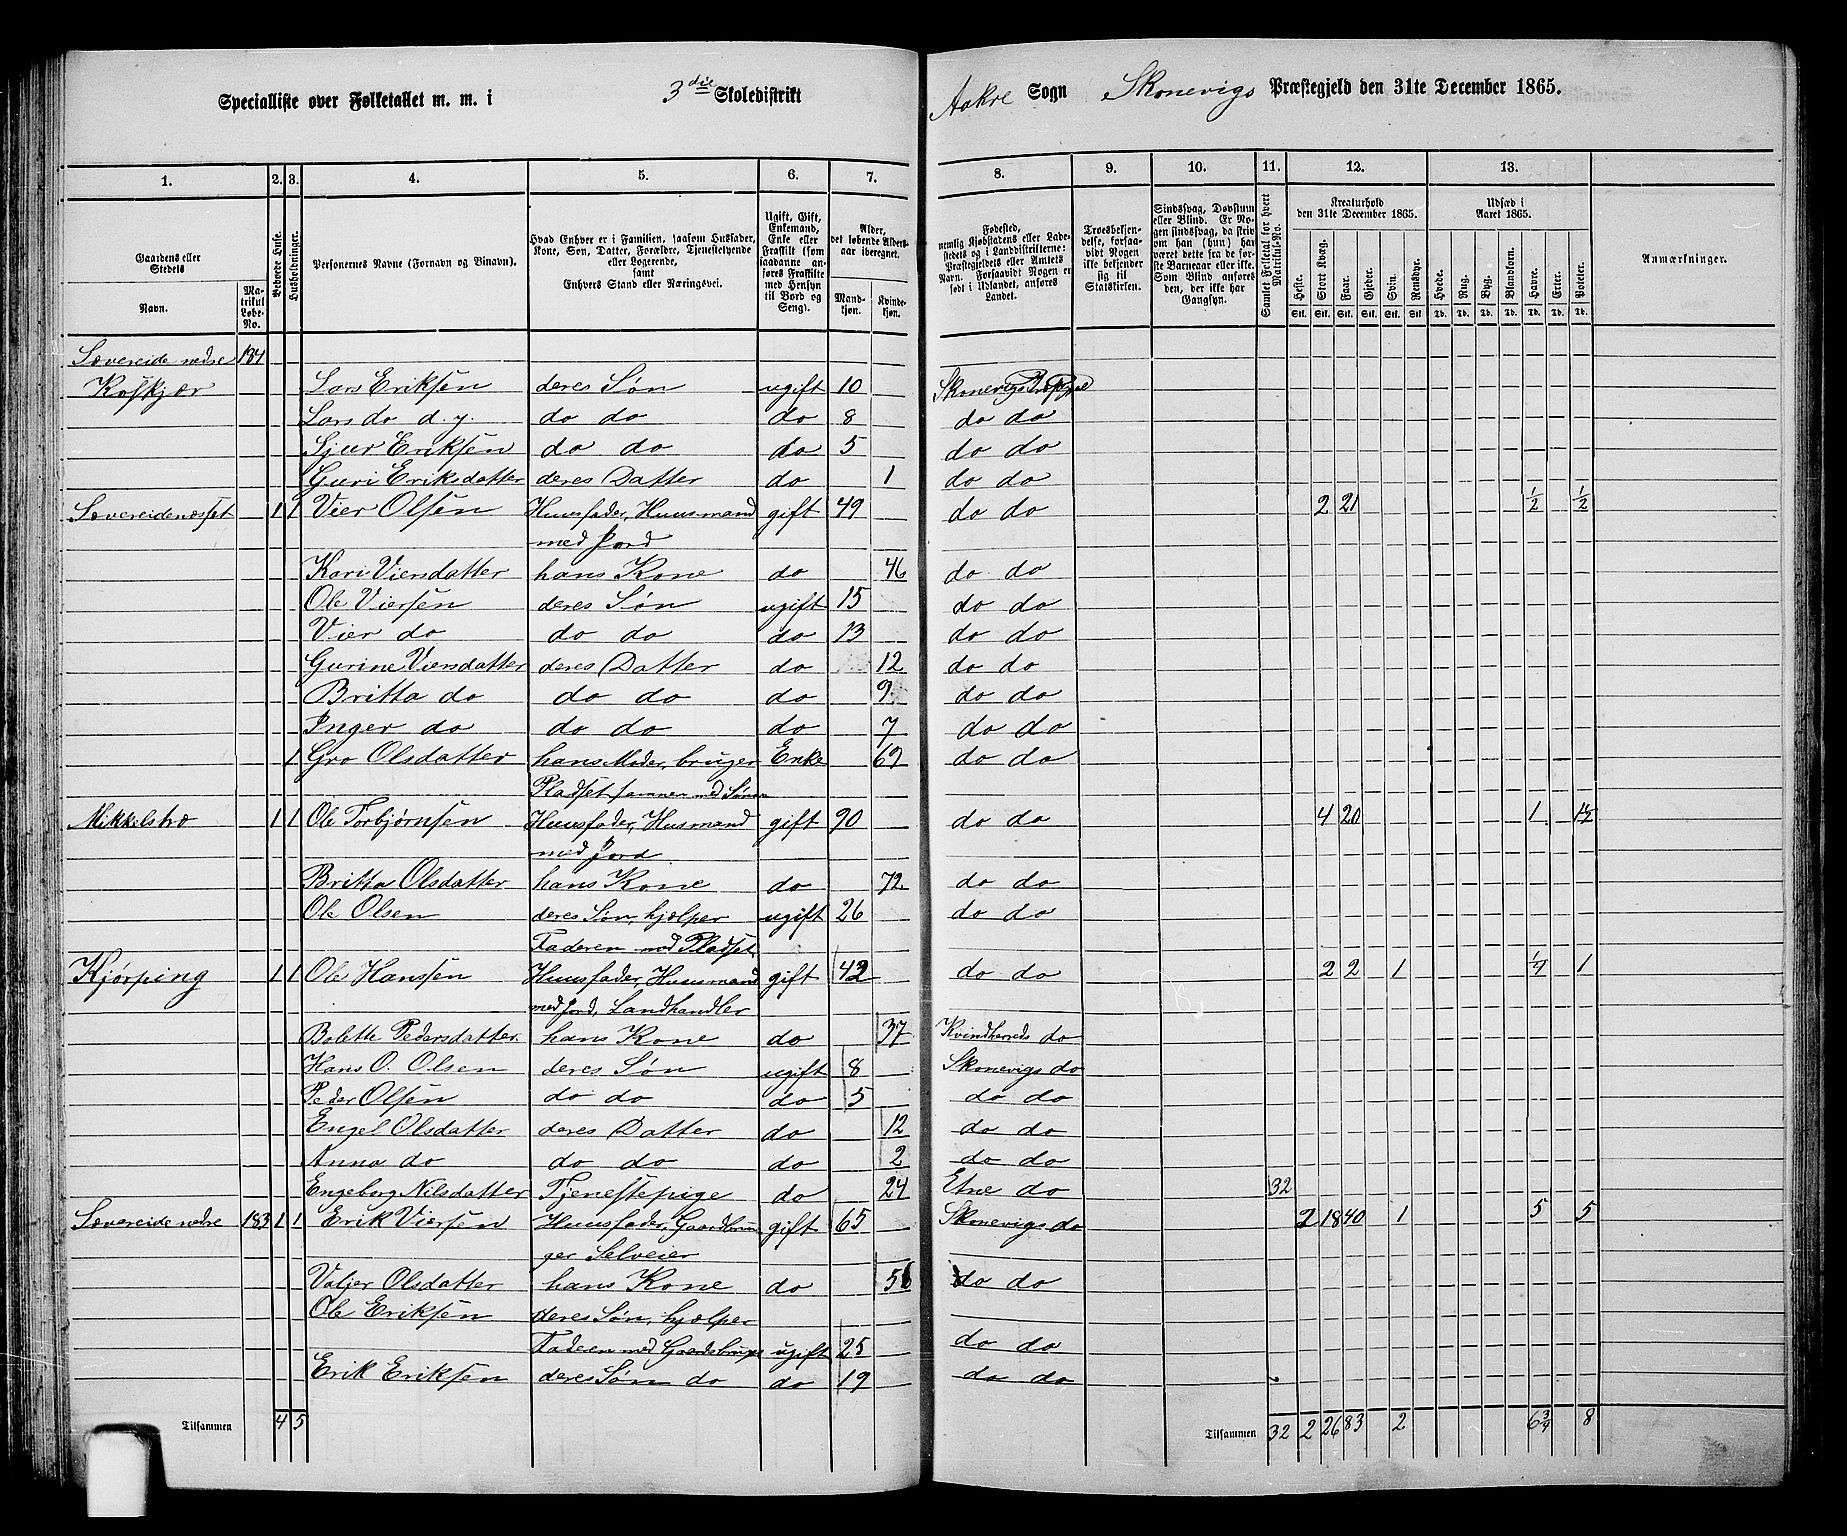 Specialliste over Folketallet m. m. i 3die Skoledistrikt Aakre Sogn Skonevigs Præstegjeld den 31te December 1865.
1. 2. 3. 4. 5. 6. 7. 8. 9. 10. 11. 12. 13.
Gaardens eller Stedets
Navn.
Matrikul Løbe-No.
Beboede Huse.
Husholdninger.
Personernes Navne (Fornavn og Binavn).
Hvad Enhver er i Familien, saasom Husfader, Kone, Søn, Datter, Forældre, Tjenestetyende eller Logerende,
samt
Enhvers Stand eller Næringsvei.
Ugift, Gift, Enkemand, Enke eller Fraskilt (som saadanne anføres Fraskilte med Hensyn til Bord og Seng).
Alder, det løbende Alders-aar iberegnet.
Mandkjøn.
Kvindekjøn.
Fødested,
nemlig Kjøbstadens eller Ladestedets og i Landdistrikterne: Præstegjeldets eller Amtets Navn. Forsaavidt Nogen er født i Udlandet, anføres Landet.
Troesbekjendelse, forsaavidt Nogen ikke bekjender sig til Statskirken.
Sindssvag, Døvstum eller Blind. Er Nogen sindssvag, da skriv om han (hun) har været dette fra de første Barneaar eller ikke. Som Blind anføres den, der ikke har Gangsyn.
Samlet Folketal for hvert Matrikul-No.
Kreaturhold den 31te December 1865.
Heste. Stort Kvæg. Faar. Gjeder. Svin. Rensdyr.
Stk. Stk. Stk. Stk. Stk. Stk.
Udsæd i Aaret 1865.
Hvede. Rug. Byg. Blandkorn. Havre. Erter. Poteter.
Td. Td. Td. Td. Td. Td. Td.
Anmærkninger.
Sævereide nedre 184
Kofskjær Lars Eriksen deres Søn ugift 10 Skonevigs
Lars do d. y. do do do 8 do do
Sjur Eriksen do do do 5 do do
Guri Eriksdatter deres Datter do 1 do do
Sævereidenæsset 1 1 Vier Olsen Huusfader, Huusmand gift 49 do do 2 21 1/2 1/2
med Jord
Kari Viersdatter hans Kone do 46 do do
Ole Viersen deres Søn ugift 15 do do
Vier do do do do 13 do do
Gurine Viersdatter deres Datter do 12 do do
Britta do do do do 9 do do
Inger do do do do 7 do do
1 Gro Olsdatter hans Moder, bruger Enke 69 do do
Pladset sammen med Sønnen
Mikkelstræ 1 1 Ole Torbjørnsen Huusfader, Husmand gift 90 do do 4 20 1 1 1/2
med Jord
Britta Olsdatter hans Kone do 72 do do
Ole Olsen deres Søn, hjælper ugift 26 do do
Faderen med Pladset
Kjørping 1 1 Ole Hansen Huusfader, Huusmand gift 42 do do 2 2 1 1/4 1
med Jord, Landhandler
Bolette Pedersdatter hans Kone do 37 Kvindherreds do
Hans O. Olsen deres Søn ugift 8 Skonevigs do
Peder Olsen do do do 5 do do
Engel Olsdatter deres Datter do 12 do do
Anna do do do do 2 do do
Engeborg Nilsdatter Tjenestepige do 24 Etne do 32
Sævereide nedre 183 1 1 Erik Viersen Huusfader, Gaardbru- gift 65 Skonevigs do 2 18 40 1 5 5
ger Selveier
Valjer Olsdatter hans Kone do 56 do do
Ole Eriksen deres Søn, hjælper
Faderen med Gaardsbruget ugift 25 do do
Erik Eriksen deres Søn do do 19 do do
Tilsammen 4 5 Tilsammen 32 2 26 83 2 6 3/4 8